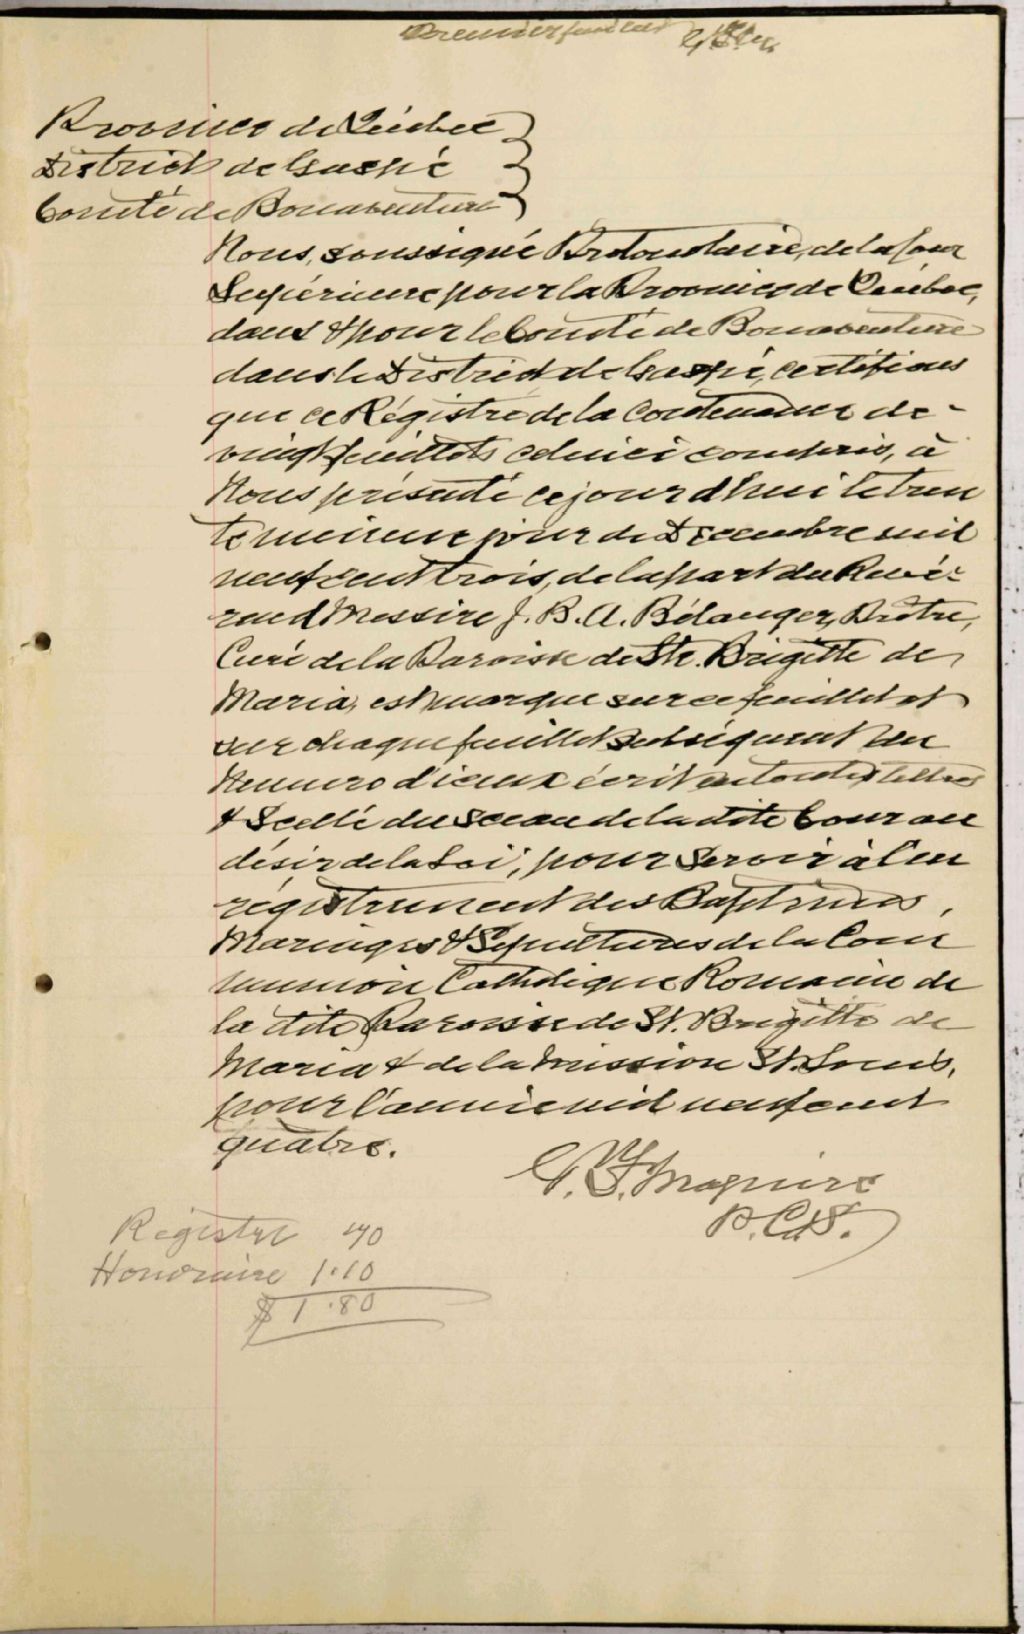 Premier feuillet
Province de Québec
District de Gaspé
Comté de Bonaventure
Nous, soussigné Protonotaire, de la Cour
Supérieure pour la Province de Québec,
dans & pour le Comté de Bonaventure
dans le District de Gaspé, certifions
que ce Régistre de la Contenance de -
vingt feuillets celui ci compris, à
Nous présenté ce jour d'hui le tren
te unième jour de Décembre mil
neuf cent trois, de la part du Révé-
rend Messire J. B. A. Bélanger, Prêtre,
Curé de la Paroisse de Ste. Brigitte de
Maria, est marqué sur ce feuillet et
sur chaque feuillet subséquent du
Numéro d'iceux écrit en toutes lettres
& Scellé du Sceau de la dite Cour au
désir de la Loi, pour servir à l'en
régistrement des Baptêmes,
Mariages & Sépultures de la Com
munion Catholique Romaine de
la dite Paroisse de St. Brigitte de
Maria & de la Mission St. Louis,
pour l'année mil neuf cent
quatre.
G. F. Maguire
P. C. S.
Régistre 70
Honoraire 1.10
$ 1.80